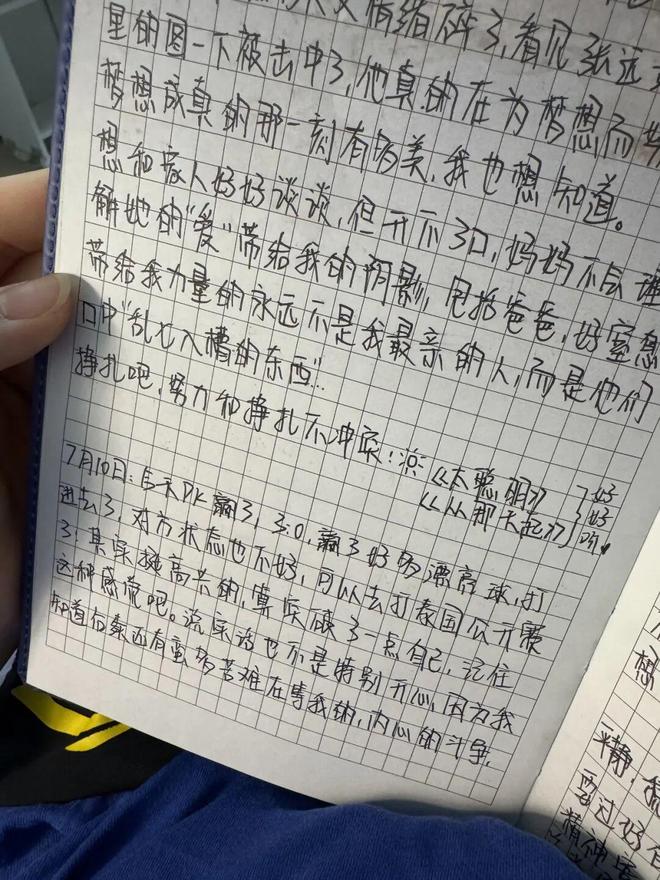 情绪碎了,看见张远
里的图一下被击中了,他真的在为梦想而
梦想成真的那一刻有多美,我也想知道。
想和家人好好谈谈,但开不了口,妈妈不会理
解她的“爱”带给我的阴影,包括爸爸,好窒息
带给我力量的永远不是我最亲的人,而是他们
口中“乱七八糟的东西”.
挣扎吧,努力和挣扎不冲突!《太聪明》好
《从那天起》好
听
7月10日: PK赢了,3:0,赢了好多漂亮球,打
进去了,对方状态也不好,可以去打泰国公开赛
了,其实挺高兴的,真实破了一点自己,记住
这种感觉吧。说实话也不是特别开心,因为我
知道后续还有蛮多苦难在等我的,内心的斗争,
想
平静,
要过好自
精神